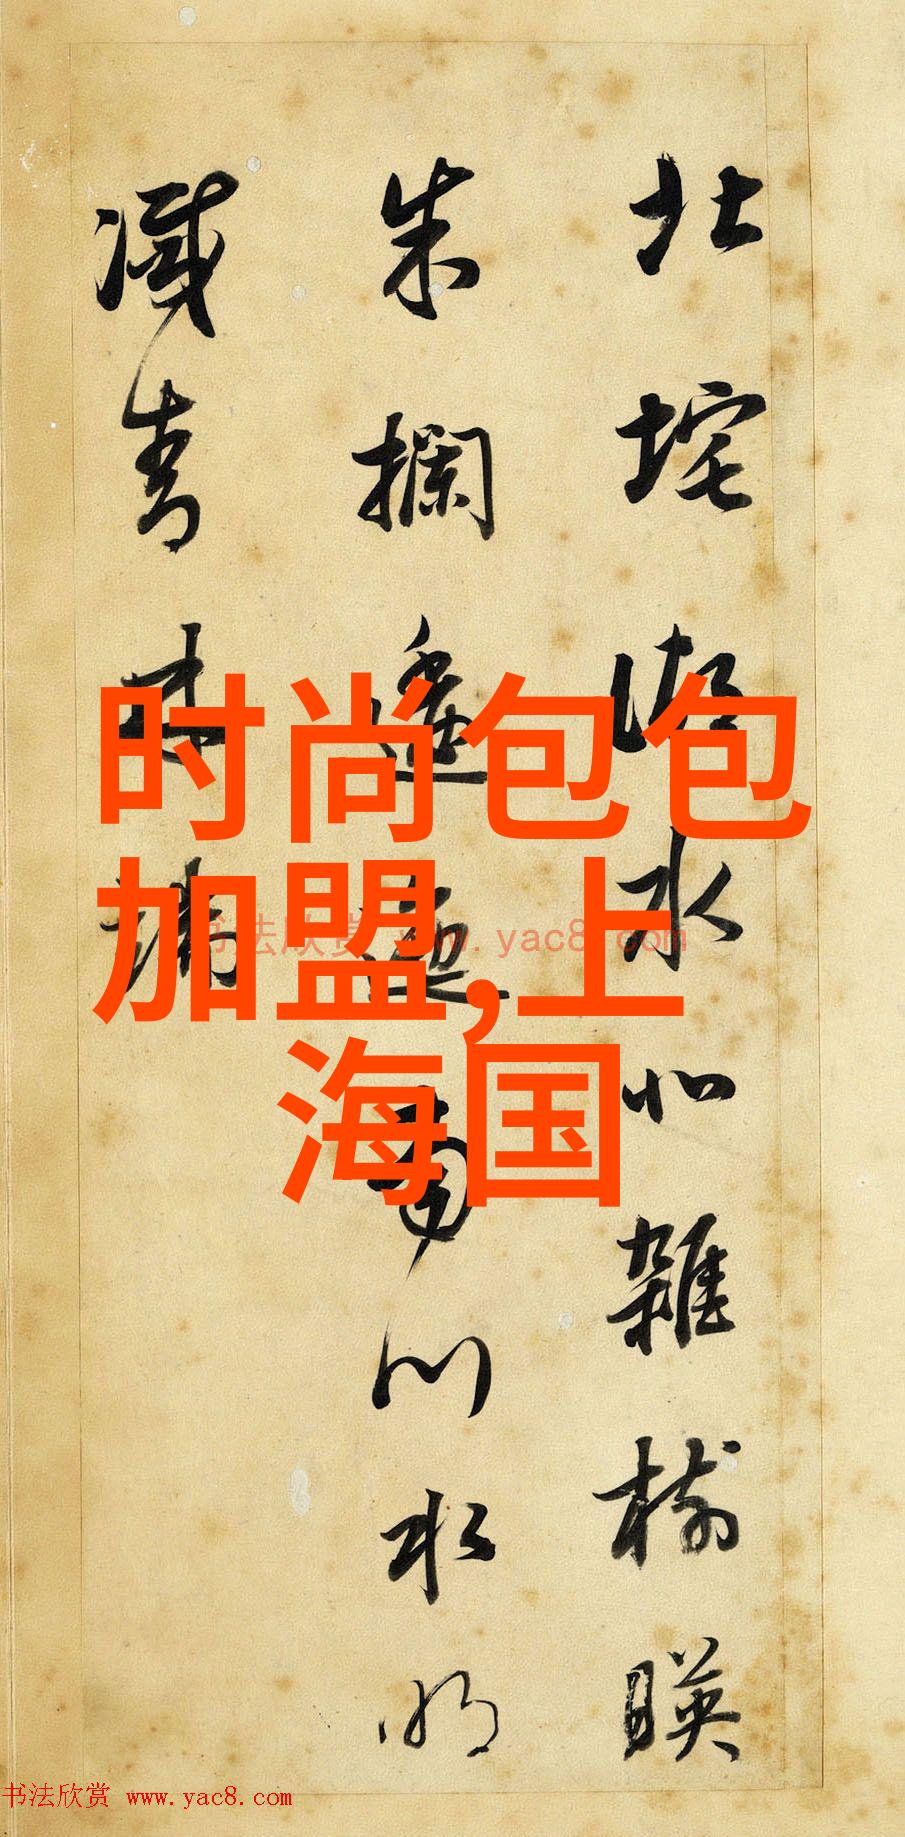 北垞湖水北雜樹暎
朱攔逶迤南川水明
滅青林端
时尚包包
加盟,上
海国
书法欣赏 www.yac8.com
书法欣赏 www.yac8.com